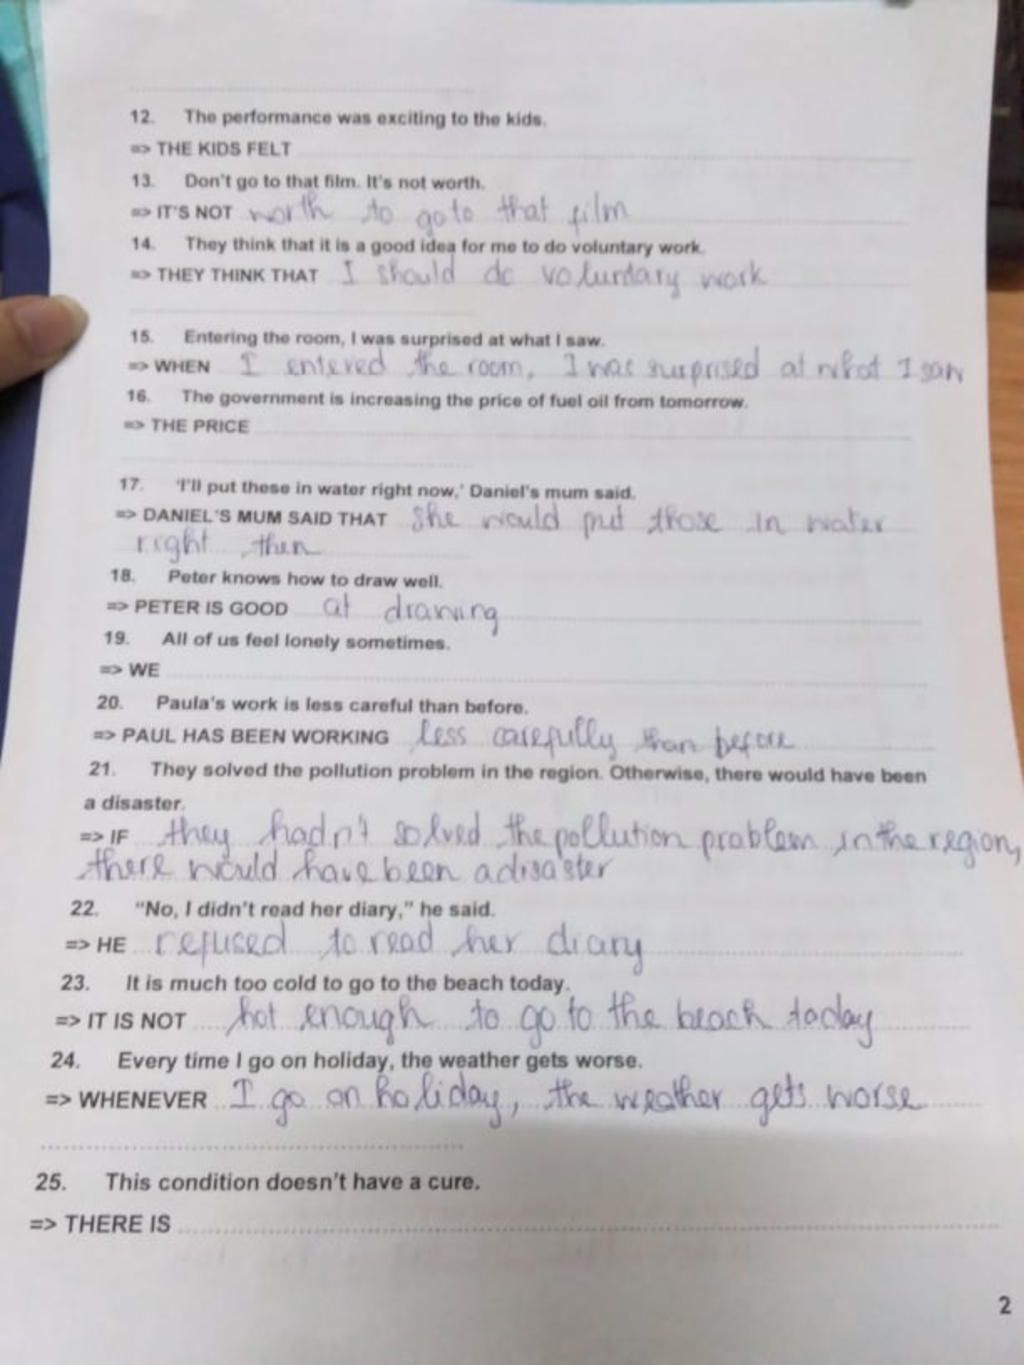 12. The performance was exciting to the kids.
=> THE KIDS FELT
13. Don't go to that film. It's not worth.
=> IT'S NOT worth to go to that film
14. They think that it is a good idea for me to do voluntary work.
=> THEY THINK THAT I should do voluntary work
15. Entering the room, I was surprised at what I saw.
=> WHEN I entered the room, I was surprised at what I saw
16. The government is increasing the price of fuel oil from tomorrow.
=> THE PRICE
17. 'I'll put these in water right now,' Daniel's mum said.
=> DANIEL'S MUM SAID THAT she would put those in water
right then
18. Peter knows how to draw well.
=> PETER IS GOOD at drawing
19. All of us feel lonely sometimes.
=> WE
20. Paula's work is less careful than before.
=> PAUL HAS BEEN WORKING less carefully than before
21. They solved the pollution problem in the region. Otherwise, there would have been
a disaster.
=> IF they hadn't solved the pollution problem in the region,
there would have been a disaster
22. "No, I didn't read her diary," he said.
=> HE refused to read her diary
23. It is much too cold to go to the beach today.
=> IT IS NOT hot enough to go to the beach today
24. Every time I go on holiday, the weather gets worse.
=> WHENEVER I go on holiday, the weather gets worse
25. This condition doesn't have a cure.
=> THERE IS
2